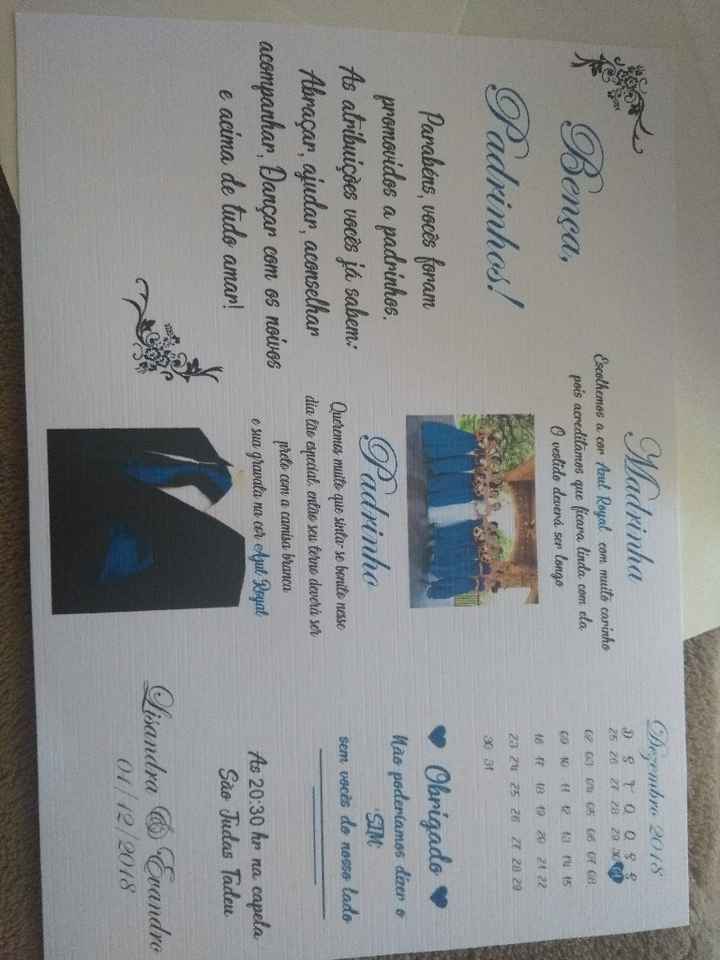 Bença,
Padrinhos!
Parabéns, vocês foram
promovidos a padrinhos.
As atribuições vocês já sabem:
Abraçar, ajudar, aconselhar
acompanhar, Dançar com os noivos
e acima de tudo amar!
Madrinha
Escolhemos a cor Azul Royal, com muito carinho
pois acreditamos que ficara linda com ela
O vestido deverá ser longo
Padrinho
Queremos muito que sinta-se bonito nesse
dia tão especial, então seu terno deverá ser
preto com a camisa branca
e sua gravata na cor Azul Royal
Dezembro 2018
D S T Q Q S S
25 26 27 28 29 30 01
02 03 04 05 06 07 08
09 10 11 12 13 14 15
16 17 18 19 20 21 22
23 24 25 26 27 28 29
30 31
Obrigado
Não poderíamos dizer o
"SIM"
sem vocês do nosso lado
As 20:30 hr na capela
São Judas Tadeu
Lisandra & Evandro
01/12/2018